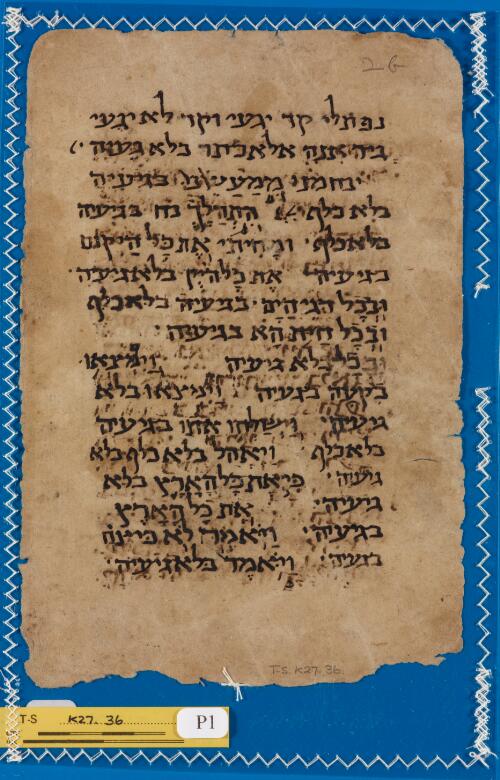 נפתלי קד יגעי וקד לא יגעי
פיה אנה אלאכתר בלא געיה
ינחמנו ממעשינו בגיעיה
בלא כלף התהלך נח בגיעיה
בלא כלף ומחיתי את כל היקום
בגיעיה את כל היק בלא גיעיה
ובכל הגיהים בגיעיה בלא כלף
ובכל חית הא בגיעיה
ובכל בלא גיעיה וימצאו
בקעה בגעיה וימצאו בלא
גיעיה וישלחו אתו בגיעיה
בלא כלף ויאהל בלא כלף בלא
געיה כי את כל הארץ בלא
גיעיה את כל הארץ
בגיעיה ויאמר לא כי
בגעיה ויאמר בלא גיעיה
T-S. K27. 36.
T-S K27. 36
P1